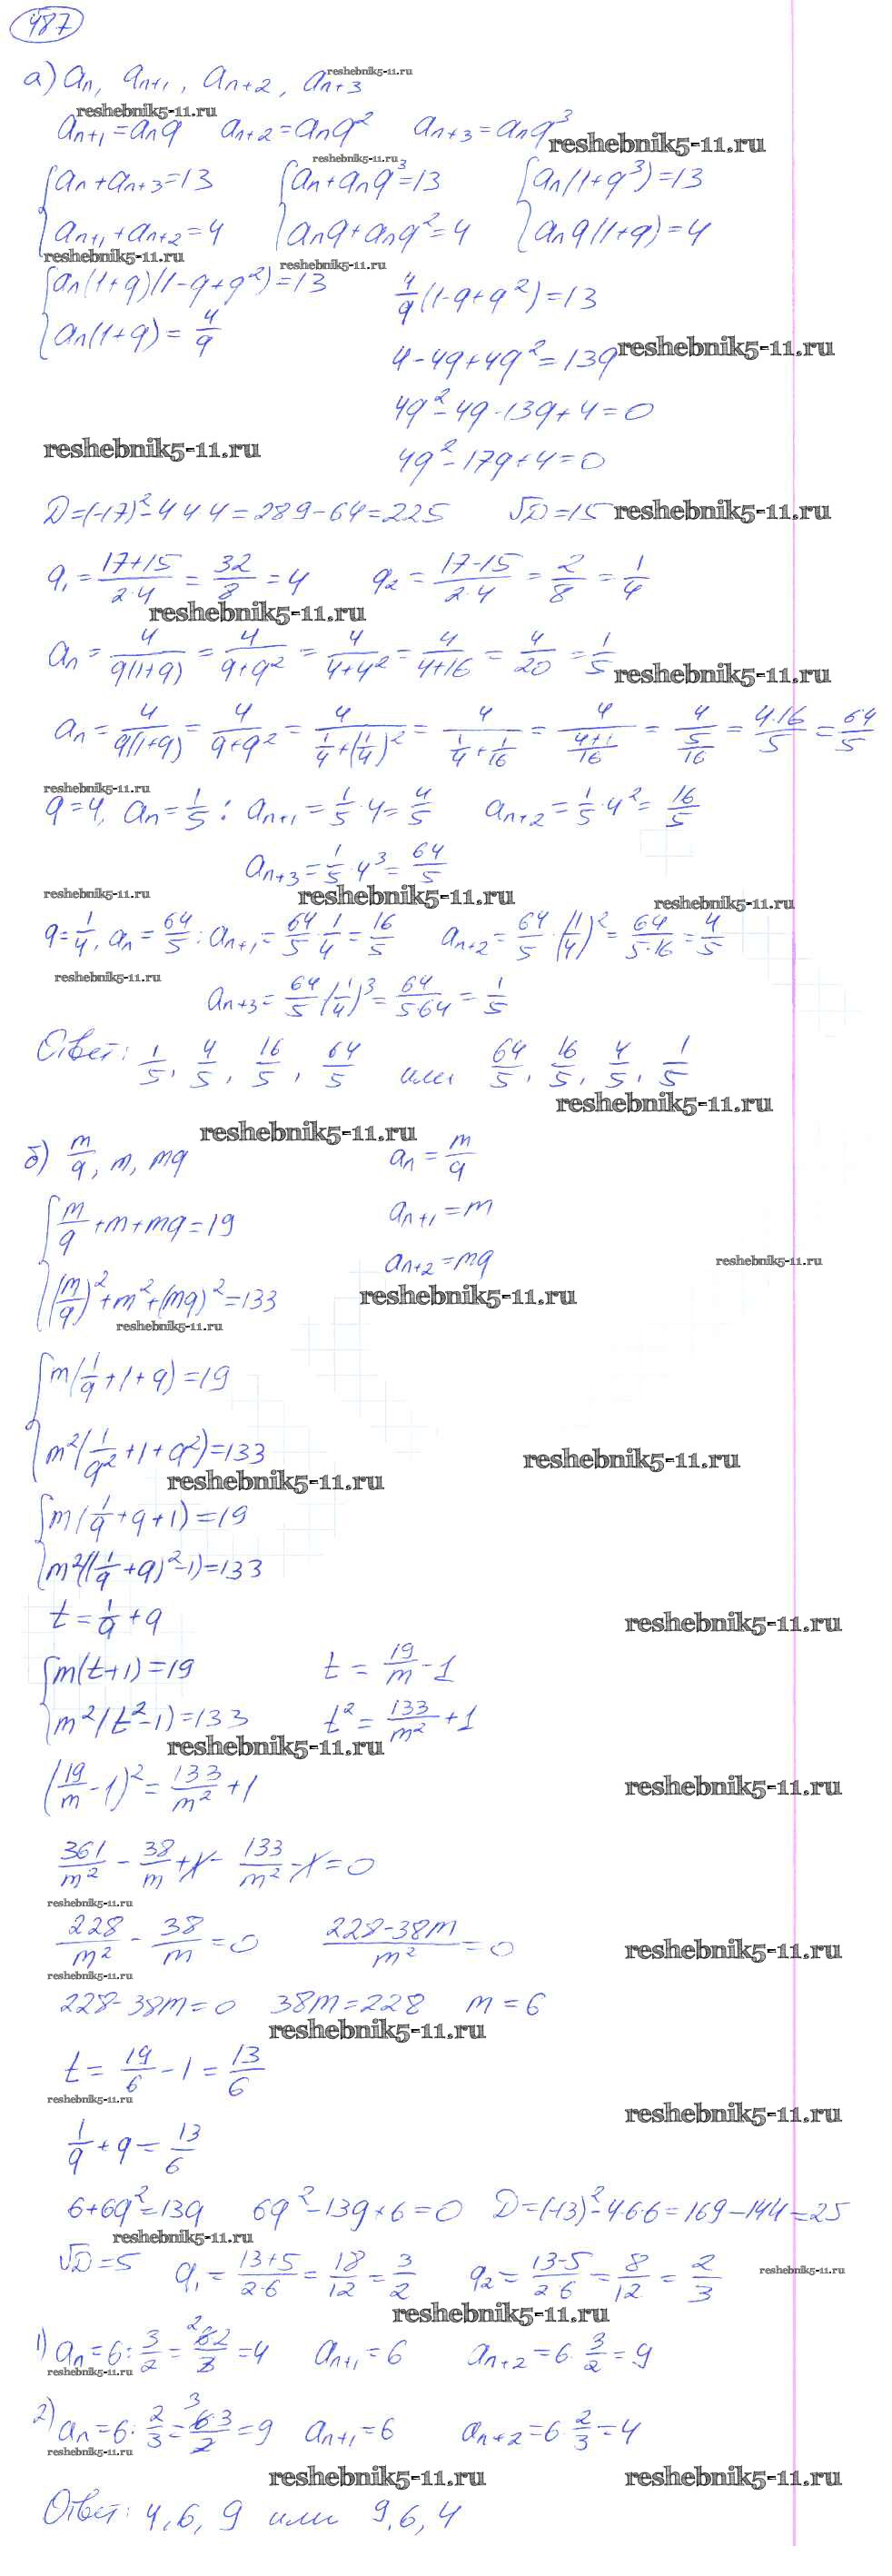 487
reshebnik5-11.ru
а) aₙ, aₙ₊₁, aₙ₊₂, aₙ₊₃
reshebnik5-11.ru
aₙ₊₁=aₙq aₙ₊₂=aₙq² aₙ₊₃=aₙq³
reshebnik5-11.ru
reshebnik5-11.ru
{aₙ+aₙ₊₃=13 {aₙ+aₙq³=13 {aₙ(1+q³)=13
{aₙ₊₁+aₙ₊₂=4 {aₙq+aₙq²=4 {aₙq(1+q)=4
reshebnik5-11.ru reshebnik5-11.ru
{aₙ(1+q)(1-q+q²)=13 4/q(1-q+q²)=13
{aₙ(1+q)=4/q
4-4q+4q²=13q reshebnik5-11.ru
4q²-4q-13q+4=0
reshebnik5-11.ru
4q²-17q+4=0
D=(-17)²-4·4·4=289-64=225 √D=15 reshebnik5-11.ru
q₁=(17+15)/(2·4)=32/8=4 q₂=(17-15)/(2·4)=2/8=1/4
reshebnik5-11.ru
aₙ=4/(q(1+q))=4/(q+q²)=4/(4+4²)=4/(4+16)=4/20=1/5
reshebnik5-11.ru
aₙ=4/(q(1+q))=4/(q+q²)=4/(1/4+(1/4)²)=4/(1/4+1/16)=4/((4+1)/16)=4/(5/16)=(4·16)/5=64/5
reshebnik5-11.ru
q=4, aₙ=1/5: aₙ₊₁=1/5·4=4/5 aₙ₊₂=1/5·4²=16/5
aₙ₊₃=1/5·4³=64/5
reshebnik5-11.ru reshebnik5-11.ru reshebnik5-11.ru
q=1/4, aₙ=64/5: aₙ₊₁=64/5·1/4=16/5 aₙ₊₂=64/5·(1/4)²=64/(5·16)=4/5
reshebnik5-11.ru
aₙ₊₃=64/5(1/4)³=64/(5·64)=1/5
Ответ: 1/5, 4/5, 16/5, 64/5 или 64/5, 16/5, 4/5, 1/5
reshebnik5-11.ru
reshebnik5-11.ru
б) m/q, m, mq aₙ=m/q
{m/q+m+mq=19 aₙ₊₁=m
aₙ₊₂=mq reshebnik5-11.ru
{(m/q)²+m²+(mq)²=133 reshebnik5-11.ru
reshebnik5-11.ru
{m(1/q+1+q)=19
{m²(1/q²+1+q²)=133 reshebnik5-11.ru
reshebnik5-11.ru
{m(1/q+q+1)=19
{m²((1/q+q)²-1)=133
t=1/q+q reshebnik5-11.ru
{m(t+1)=19 t=19/m-1
{m²(t²-1)=133 t²=133/m²+1
reshebnik5-11.ru
(19/m-1)²=133/m²+1 reshebnik5-11.ru
361/m²-38/m+1-133/m²-1=0
reshebnik5-11.ru
228/m²-38/m=0 (228-38m)/m²=0 reshebnik5-11.ru
reshebnik5-11.ru
228-38m=0 38m=228 m=6
reshebnik5-11.ru
t=19/6-1=13/6
reshebnik5-11.ru
reshebnik5-11.ru
1/q+q=13/6
6+6q²=13q 6q²-13q+6=0 D=(-13)²-4·6·6=169-144=25
reshebnik5-11.ru
√D=5 q₁=(13+5)/(2·6)=18/12=3/2 q₂=(13-5)/(2·6)=8/12=2/3 reshebnik5-11.ru
reshebnik5-11.ru
1) aₙ=6:3/2=(6·2)/3=4 aₙ₊₁=6 aₙ₊₂=6·3/2=9
reshebnik5-11.ru
2) aₙ=6:2/3=(6·3)/2=9 aₙ₊₁=6 aₙ₊₂=6·2/3=4
reshebnik5-11.ru
reshebnik5-11.ru reshebnik5-11.ru
Ответ: 4, 6, 9 или 9, 6, 4